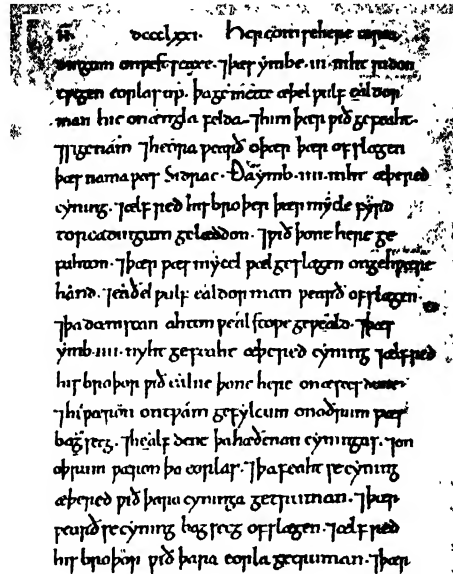 dccclxxi. Her com se here
dingum on ƿestseaxe. ⁊þæs ymbe .iii. niht ridon
tƿegen eorlas up. þa gemette æþelƿulf ealdor
man hie on ængla felda. ⁊him þær ƿið gefeaht.
⁊sige nam. ⁊heora ƿearð oþær þær ofslægen
þæs nama ƿæs Sidrac. Ða ymb .iiii. niht æþered
cyning. ⁊ælfred his broþer þær mycle fyrd
to readingum gelæddon. ⁊ƿið þone here ge
fuhton. ⁊þær ƿæs mycel ƿæl geslagen on gehƿæþre
hand. ⁊eaðelƿulf ealdorman ƿearð ofslægen.
⁊þa deniscan ahton ƿælstoƿe geƿeald. ⁊þæs
ymb .iiii. nyht gefeaht æþered cyning ⁊ælfred
his broþor ƿið ealne þone here on æsces dune
⁊hi ƿæron on tƿam gefylcum on oðrum ƿæs
bagsecg. ⁊healfdene þa hæðenan cyningas. ⁊on
oþrum ƿæron þa eorlas. ⁊þa feaht se cyning
æþered ƿið þara cyninga getruman. ⁊þær
ƿearð se cyning bagsecg ofslægen. ⁊ælfred
his broþor ƿið þara eorla getruman. ⁊þær